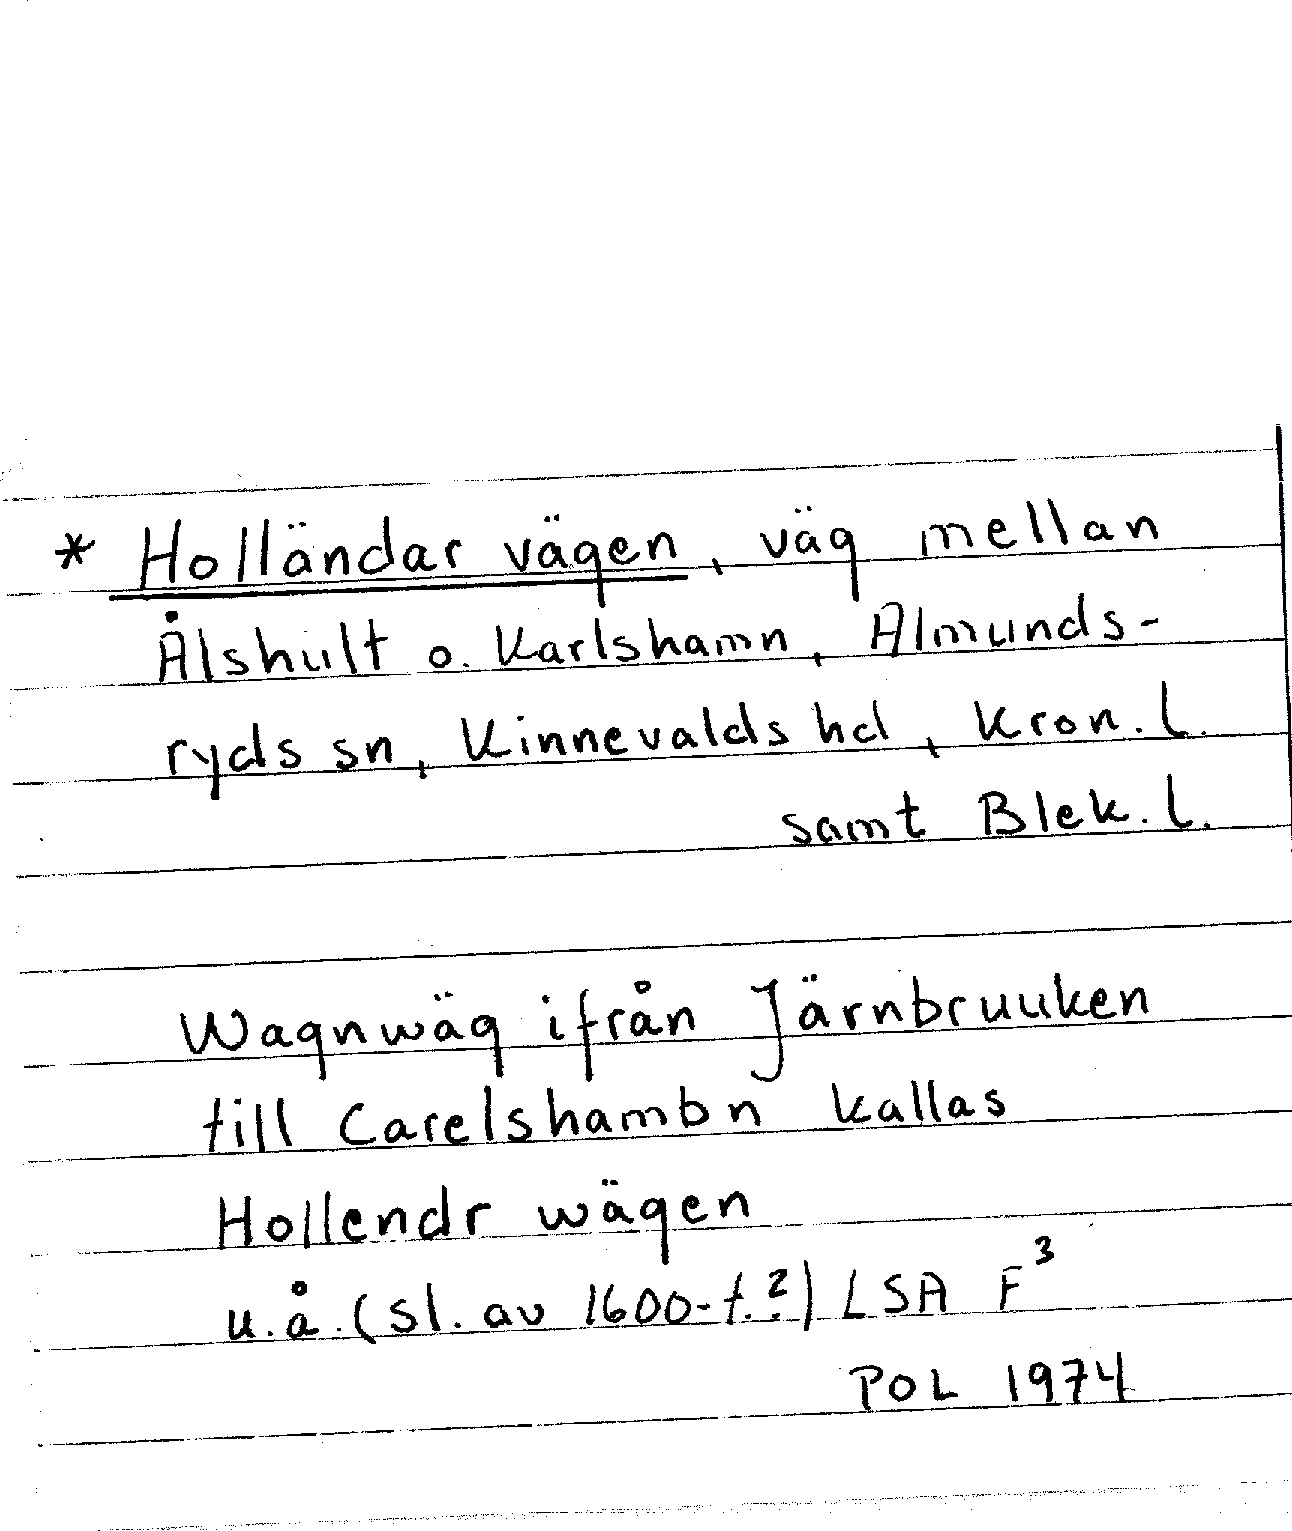 * Holländar vägen, väg mellan
Ålshult o. Karlshamn, Almunds-
ryds sn, Kinnevalds hd, Kron. l.
samt Blek. l.
Wagnwäg ifrån Järnbruuken
till Carelshambn kallas
Hollendr wägen
u.å. (sl. av 1600-t.?) LSA F³
POL 1974